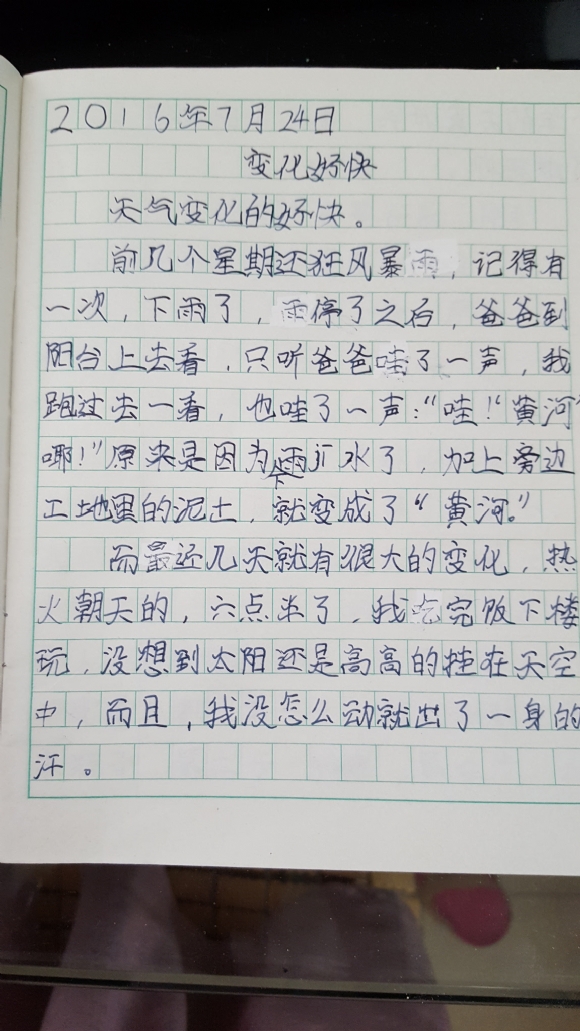 2016年7月24日
变化好快
天气变化的好快。
前几个星期还狂风暴雨，记得有
一次，下雨了，雨停了之后，爸爸到
阳台上去看，只听爸爸哇了一声，我
跑过去一看，也哇了一声：“哇！“黄河”
哪！”原来是因为下雨积水了，加上旁边
工地里的泥土，就变成了“黄河。”
而最近几天就有很大的变化，热
火朝天的，六点半了，我吃完饭下楼
玩，没想到太阳还是高高的挂在天空
中，而且，我没怎么动就出了一身的
汗。